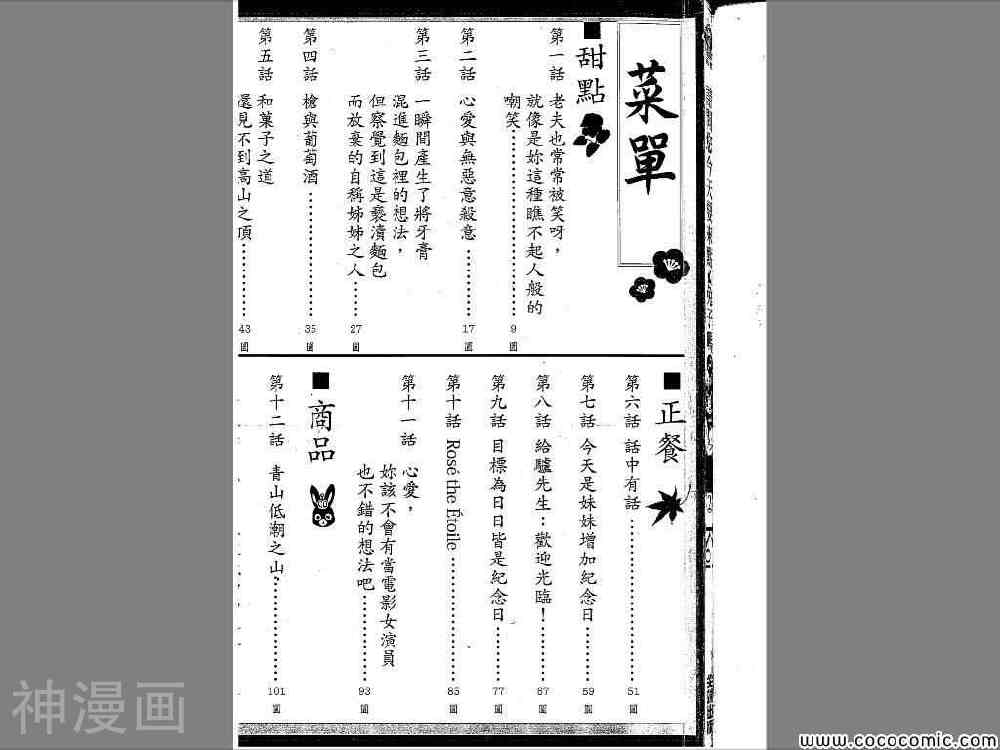 菜單
■甜點
第一話 老夫也常常被笑呀，
就像是妳這種瞧不起人般的
嘲笑…………………… 9
第二話 心愛與無惡意殺意………… 17
第三話 一瞬間產生了將牙膏
混進麵包裡的想法，
但察覺到這是褻瀆麵包
而放棄的自稱姊姊之人…… 27
第四話 槍與葡萄酒…………………… 35
第五話 和菓子之道
還見不到高山之頂………… 43
■正餐
第六話 話中有話…………………… 51
第七話 今天是妹妹增加紀念日……… 59
第八話 給驢先生：歡迎光臨！……… 67
第九話 目標為日日皆是紀念日……… 77
第十話 Rosé the Étoile……………… 85
第十一話 心愛，
妳該不會有當電影女演員
也不錯的想法吧………… 93
■商品
第十二話 青山低潮之山…………… 101
神漫画
www.cococomic.com